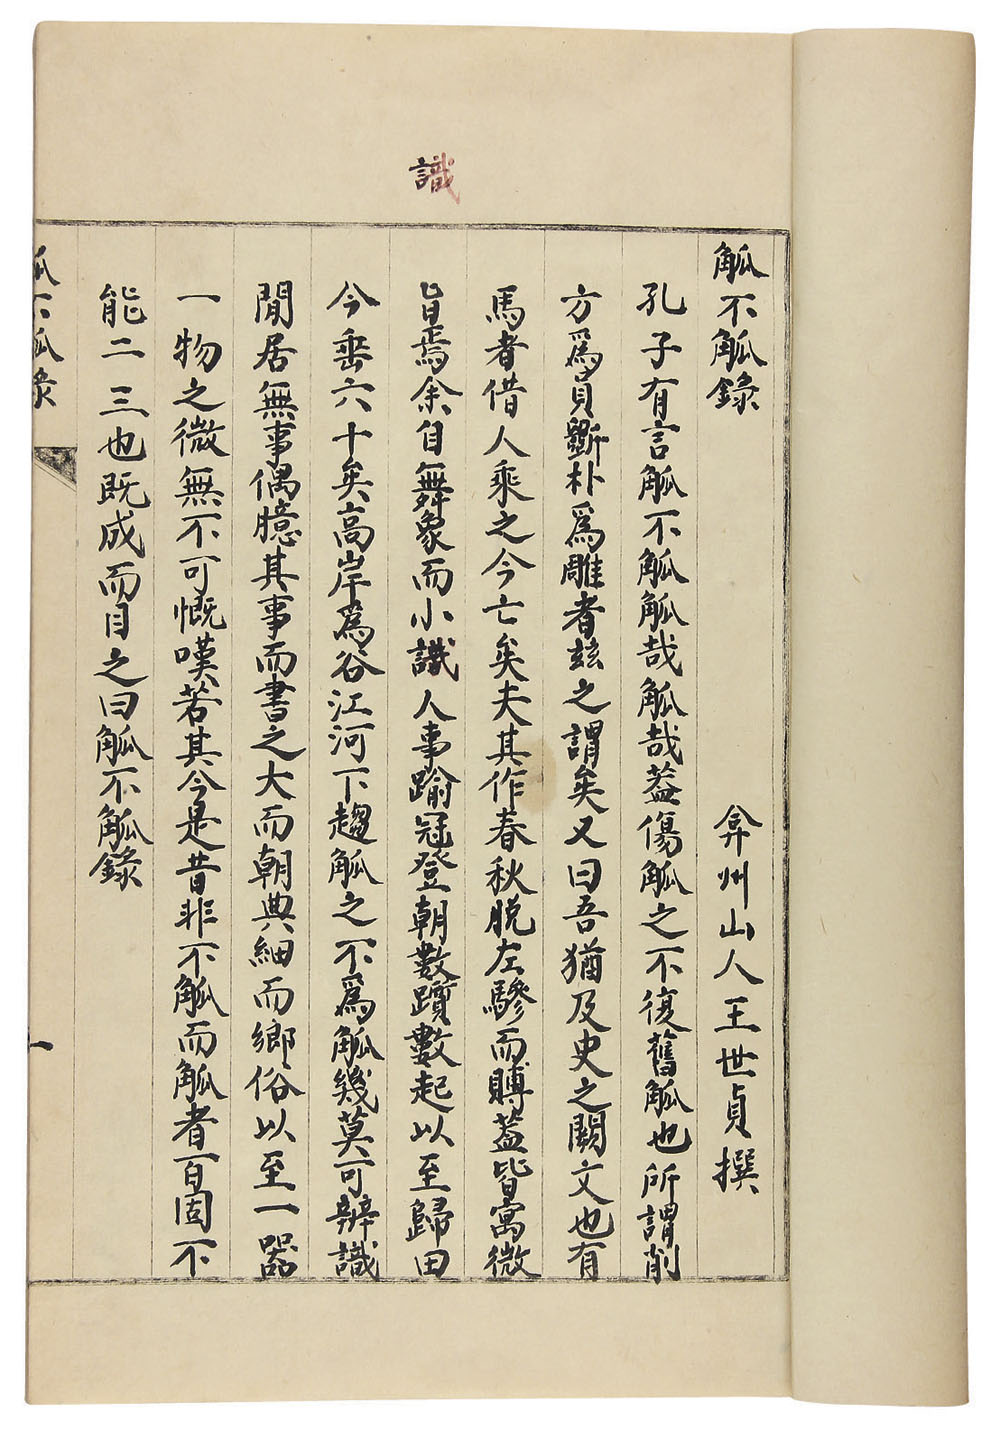 識
觚不觚錄
弇州山人王世貞撰
孔子有言觚不觚觚哉觚哉蓋傷觚之不復舊觚也所謂削
方爲員斵朴爲雕者玆之謂矣又曰吾猶及史之闕文也有
馬者借人乘之今亡矣夫其作春秋脫左驂而賻蓋皆寓微
旨焉余自舞象而小識人事踰冠登朝數躓數起以至歸田
今垂六十矣高岸爲谷江河下趨觚之不爲觚幾莫可辨識
閒居無事偶臆其事而書之大而朝典細而鄉俗以至一器
一物之微無不可慨嘆若其今是昔非不觚而觚者百固不
能二三也既成而目之曰觚不觚錄
觚不觚錄
一